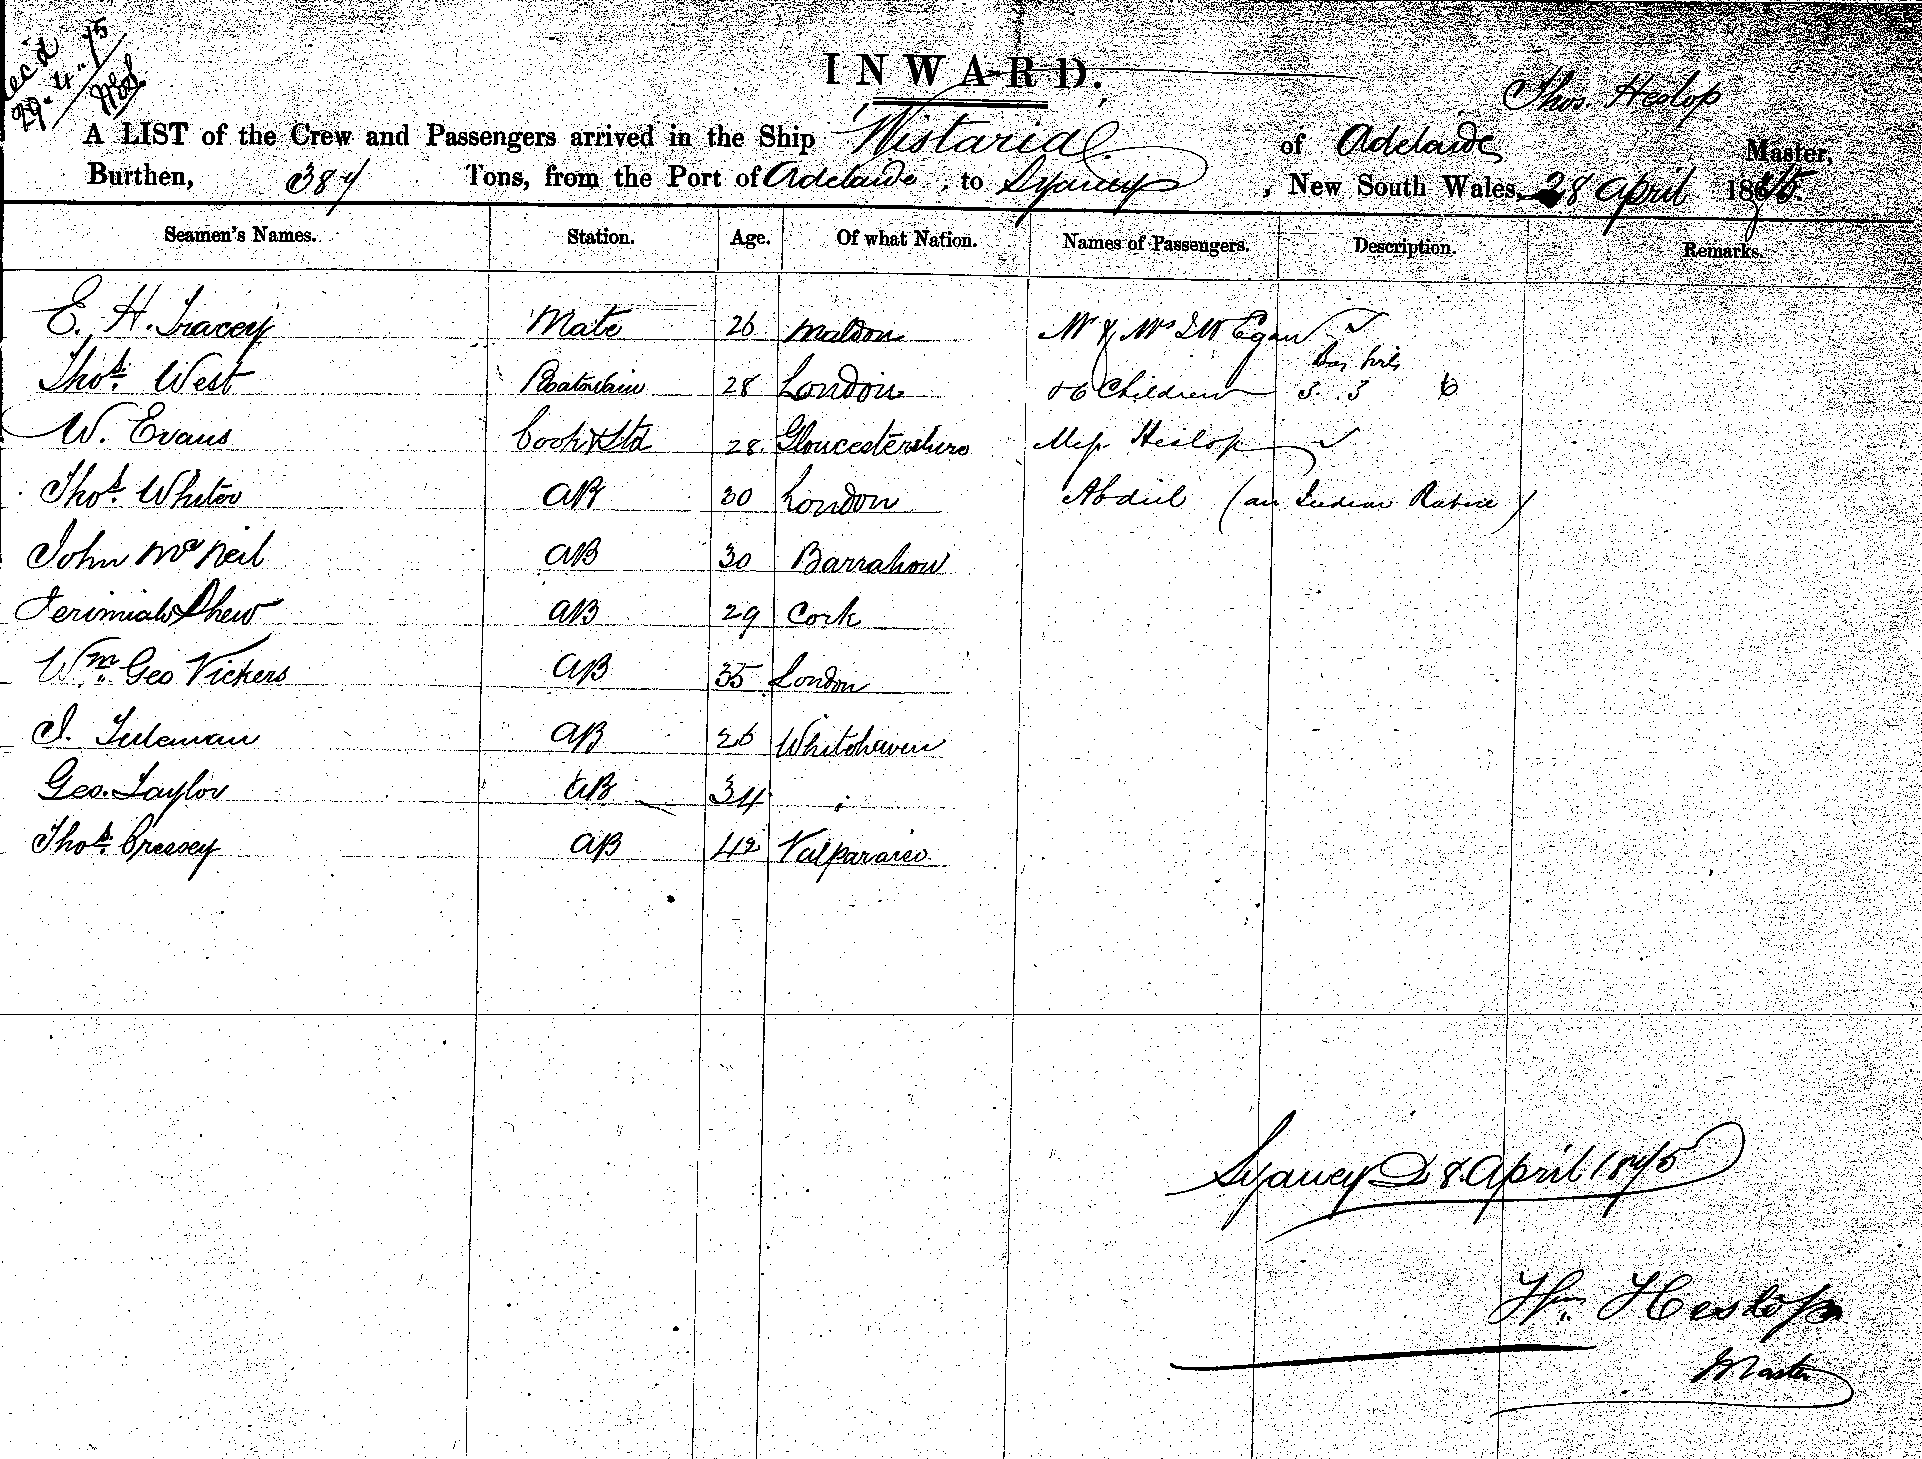 Rec'd
29.4.75
INWARD.
Thos. Heslop
A LIST of the Crew and Passengers arrived in the Ship Wistaria of Adelaide Master,
Burthen, 387 Tons, from the Port of Adelaide, to Sydney, New South Wales, 28 April 1875.
Seamen's Names. Station. Age. Of what Nation. Names of Passengers. Description. Remarks.
E. H. Tracey Mate 26 Maldon Mr & Mrs Egan
Boy Girls
Thos. West Boatswain 28 London & 6 Children 3. 3 6
W. Evans Cook & Std 28. Gloucestershire Miss Heslop
Thos. Whiter AB 30 London Abdul (an Indian Native)
John McNeil AB 30 Barrahow
Jerimiah Shew AB 29 Cork
Wm. Geo Vickers AB 35 London
J. AB 26 Whitehaven
Geo. Taylor AB 34 "
Thos. Creesey AB 42 Valparaiso
Sydney 28 April 1875
Wm. Heslop
Master